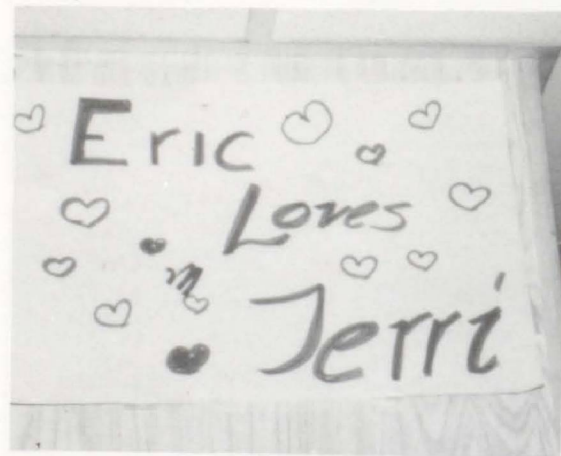 Eric
Loves
Jerri